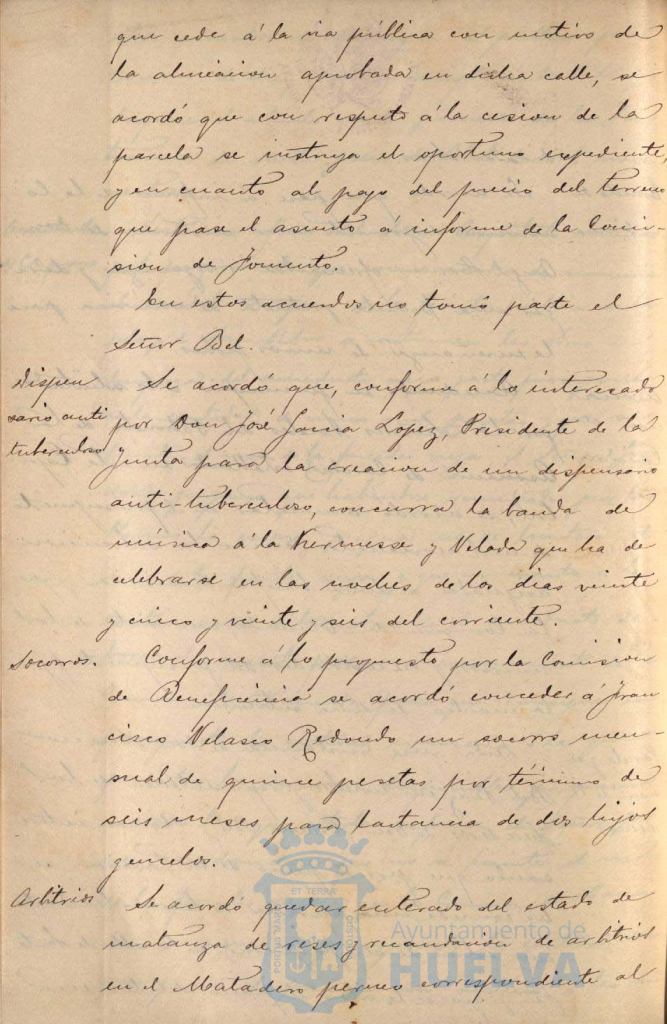 que cede á la via pública con motivo de
la alineacion aprobada en dicha calle, se
acordó que con respeto á la cesion de la
parcela se instruya el oportuno expediente,
y en cuanto al pago del precio del terreno
que pase el asunto á informe de la Comi-
sion de Fomento.
En estos acuerdos no tomó parte el
Señor Bel.
Dispen
sario anti
tuberculoso
Se acordó que, conforme á lo interesado
por Don José Garcia Lopez, Presidente de la
Junta para la creacion de un dispensario
anti-tuberculoso, concurra la banda de
música á la Kermesse y Velada que ha de
celebrarse en las noches de los dias veinte
y cinco y veinte y seis del corriente.
Socorros.
Conforme á lo propuesto por la Comision
de Beneficencia se acordó conceder á Fran
cisco Velasco Redondo un socorro men-
sual de quince pesetas por término de
seis meses para lactancia de dos hijos
gemelos.
Arbitrios
Se acordó quedar enterado del estado de
matanza de reses y recaudacion de arbitrios
en el Matadero correspondiente al
ET TERRÆ
PORTUS MARIS
CUSTODIO
Ayuntamiento de
HUELVA